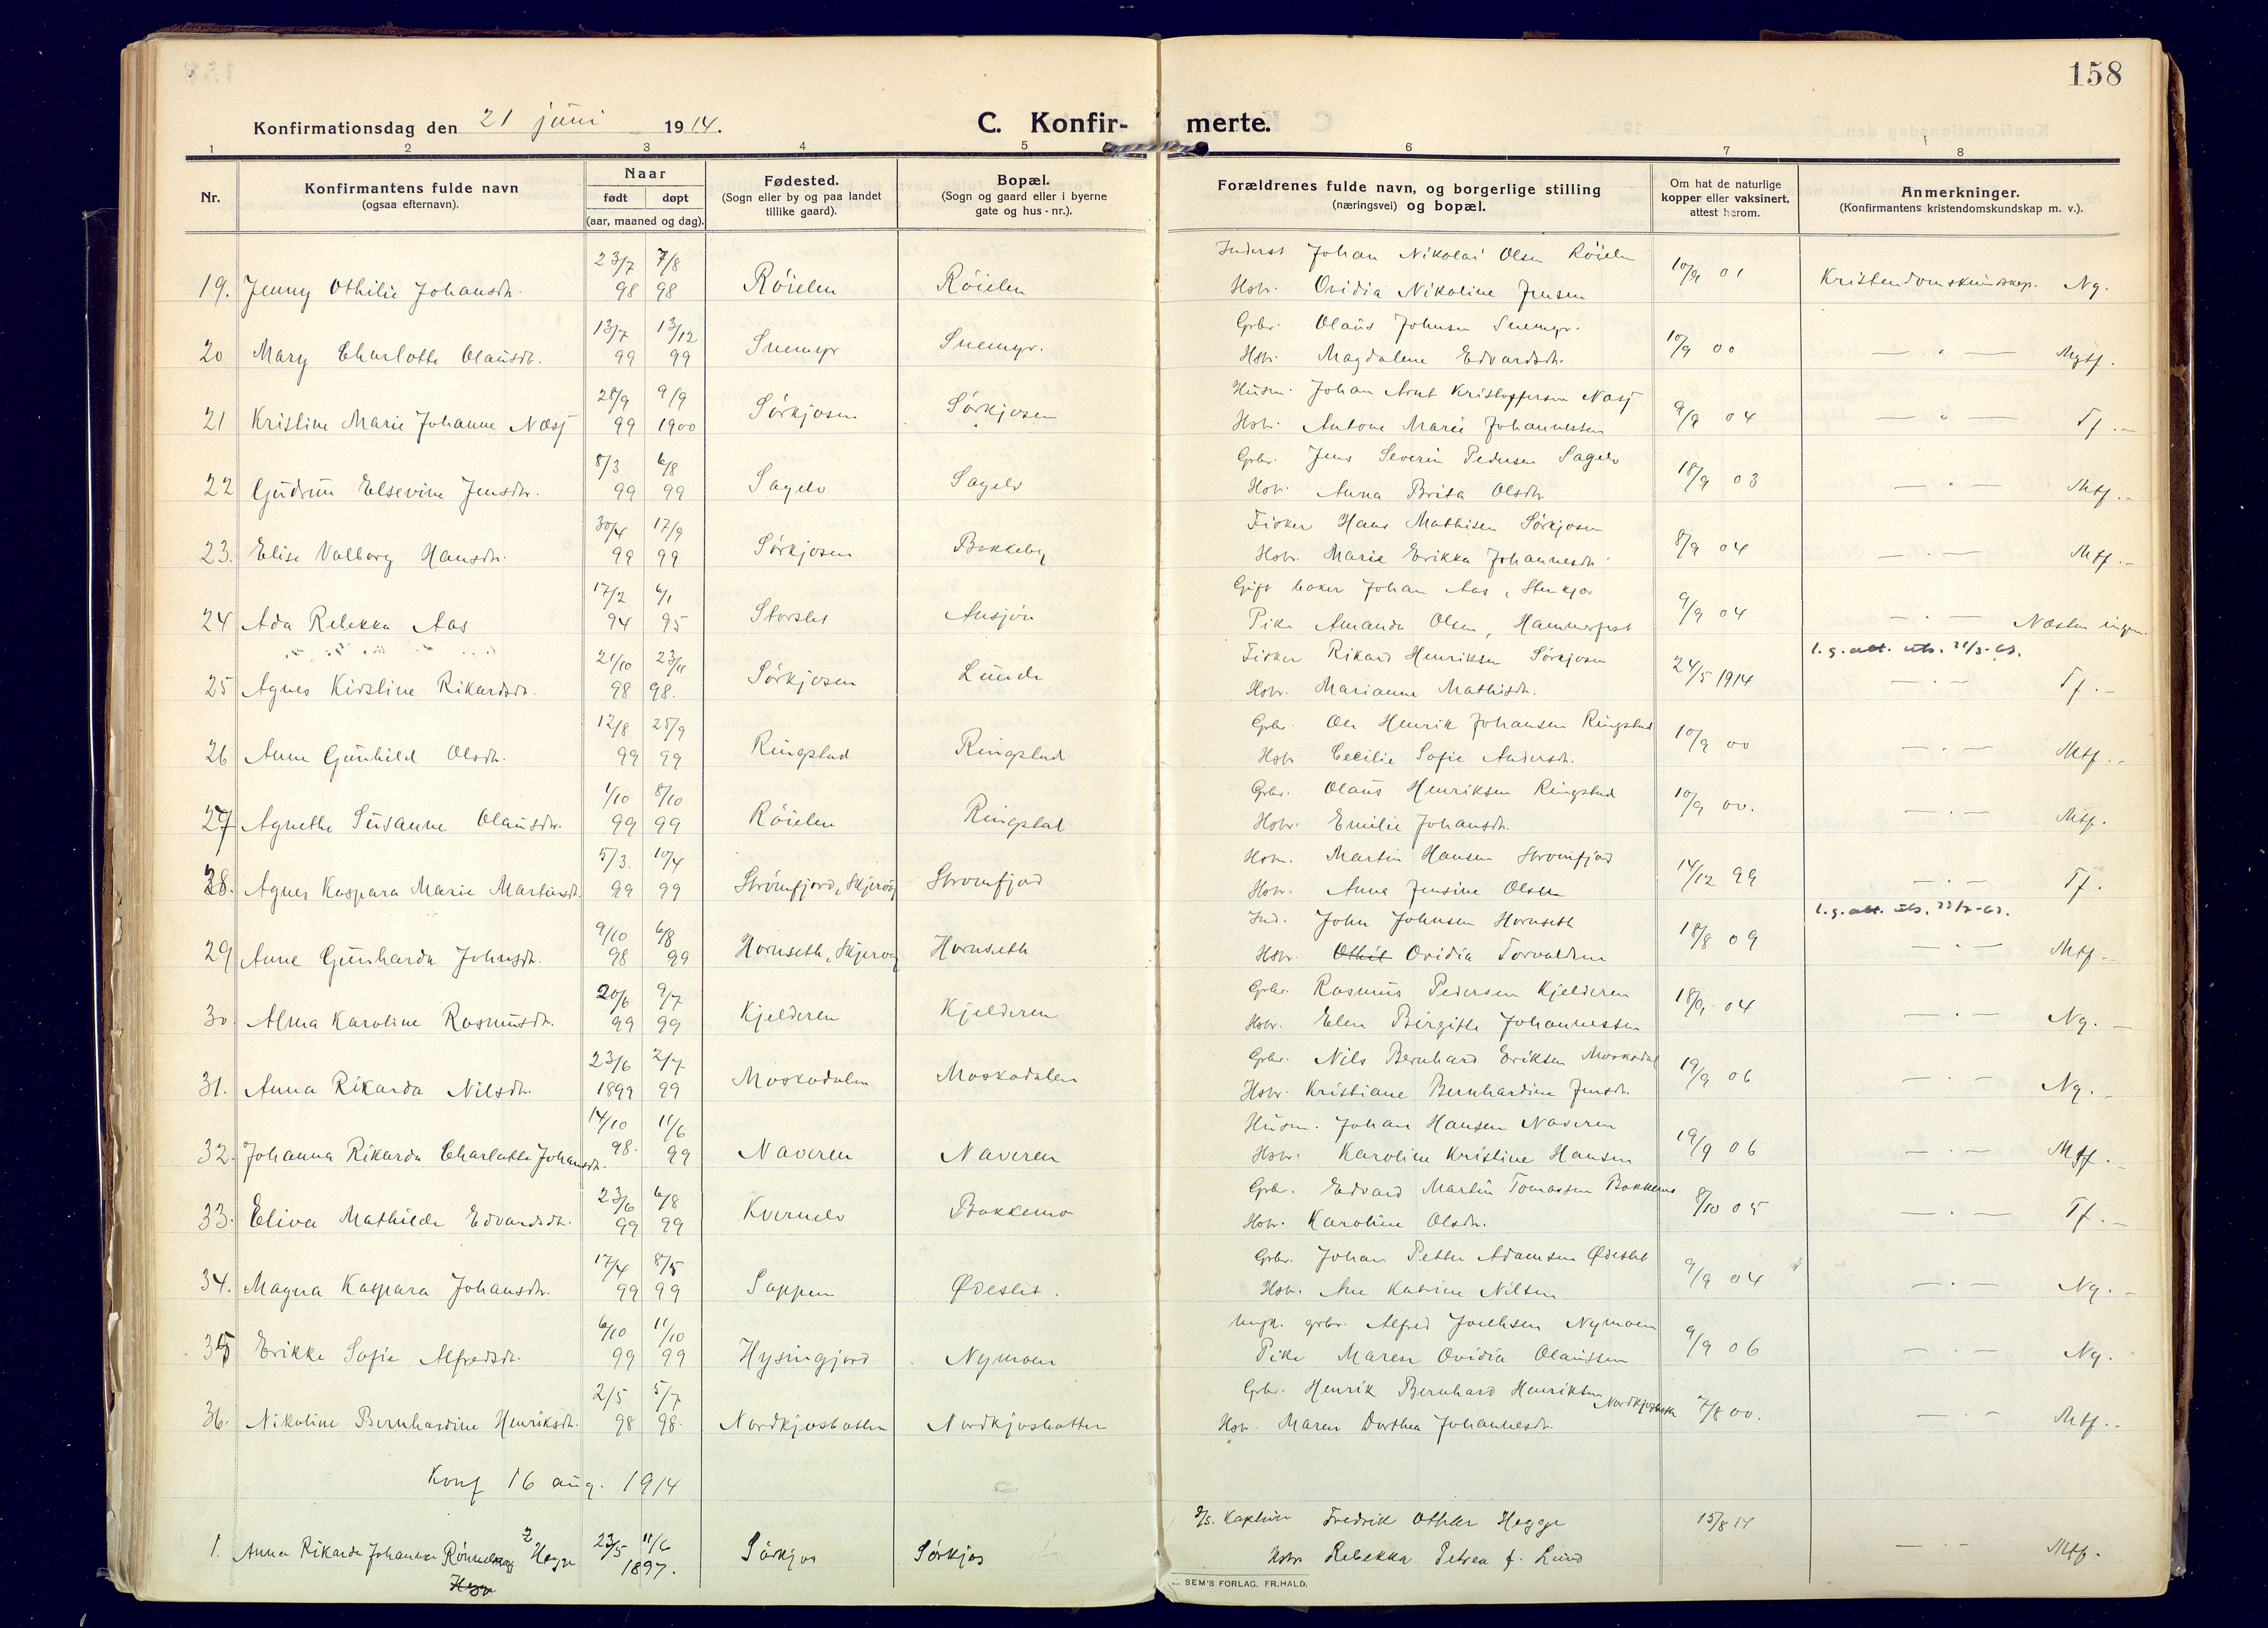 158
Konfirmationsdag den 21 juni 1914.
C. Konfir- merte.
1 2 3 4 5 6 7 8
Nr.
Konfirmantens fulde navn
(ogsaa efternavn).
Naar
født døpt
(aar, maaned og dag).
Fødested.
(Sogn eller by og paa landet
tillike gaard).
Bopæl.
(Sogn og gaard eller i byerne
gate og hus-nr.).
Forældrenes fulde navn, og borgerlige stilling
(næringsvei) og bopæl.
Om hat de naturlige
kopper eller vaksinert,
attest herom.
Anmerkninger.
(Konfirmantens kristendomskundskap m. v.).
23/7 7/8 Inderst Johan Nikolai Olsen Röielen
19. Jenny Othilie Johansdr. 98 98 Röielen Röielen Hstr. Ovidia Nikoline Jensen 10/9 01 Kristendomskundskap. Ng.
13/7 13/12 Grbr. Olaus Johnsen Snemyr.
20 Mary Charlotte Olausdr. 99 99 Snemyr Snemyr. Hstr. Magdalene Edvardsdr. 10/9 00 — " — Mgtf.
28/9 9/9 Husm. Johan Arnt Kristoffersen Næsj
21 Kristine Marie Johanne Næsj 99 1900 Sörkjosen Sörkjosen Hstr. Antone Marie Johannessen 9/9 04 — " — Tf.
8/3 6/8 Grbr. Jens Severin Pedersen Sagelv
22 Gudrun Elsevine Jensdr. 99 99 Sagelv Sagelv Hstr. Anna Brita Olsdr. 18/9 03 — " — Mtf.
30/4 17/9 Fisker Hans Mathisen Sörkjosen
23. Elise Valborg Hansdr. 99 99 Sörkjosen Bakkeby Hstr. Marie Erikka Johannesdr. 8/9 04 — " — Mtf.
17/2 6/1 Gift baker Johan Aas, Stenkjær
24 Ada Rebekka Aas 94 95 Storslet Ansjön Pike Amanda Olsen, Hammerfest 9/9 04 — " — Næsten ingen.
21/10 23/11 Fisker Rikard Henriksen Sörkjosen l.g. att. utst.
25 Agnes Kirstine Rikardsdr. 98 98. Sörkjosen Lunde Hstr. Marianne Mathisdr. 24/5 1914 — " — Tf.
12/8 25/9 Grbr. Ole Henrik Johansen Ringstad
26 Anne Gunhild Olsdr. 99 99 Ringstad Ringstad Hstr. Cecilie Sofie Andersdr. 10/9 00 — " — Mtf.
1/10 8/10 Grbr. Olaus Henriksen Ringstad
27 Agnethe Susanne Olausdr. 99 99 Röielen Ringstad Hstr. Emilie Johansdr. 10/9 00. — " — Mtf.
5/3. 10/4 Hsm. Martin Hansen Strömfjord
28. Agnes Kaspara Marie Martinsdr. 99 99 Strömfjord, Skjervöy Strömfjord Hstr. Anna Jensine Olsen 14/12 99 — " — Tf.
9/10 6/8 Ind. John Johnsen Hornseth l.g. att. utst.
29 Anne Gunharda Johnsdr. 98 99 Hornseth, Skjervöy Hornseth Hstr. Othil Ovidia Torvaldsen 18/8 09 — " — Mtf.
20/6 9/7 Grbr. Rasmus Pedersen Kjelderen
30 Alma Karoline Rasmusdr. 99 99 Kjelderen Kjelderen Hstr. Elen Birgitte Johannessen 18/9 04 — " — Ng.
23/6 2/7 Grbr. Nils Bernhard Eriksen Moskodal
31. Anna Rikarda Nilsdr. 1899 99 Moskodalen Moskodalen Hstr. Kristiane Bernhardine Jensdr. 19/9 06 — " — Ng.
14/10 11/6 Husm. Johan Hansen Naveren
32. Johanna Rikarda Charlotte Johansdr. 98. 99 Naveren Naveren Hstr. Karoline Kristine Hansen 19/9 06 — " — Mtf.
23/6 6/8 Grbr. Edvard Martin Tomassen Bakkemo
33. Eliva Mathilde Edvardsdr. 99 99 Kvernelv Bakkemo Hstr. Karoline Olsdr. 8/10 05 — " — Tf.
17/4 8/5 Grbr. Johan Petter Adamsen Ødeslet
34. Magna Kaspara Johansdr. 99 99 Sappen Ødeslet. Hstr. Ane Katrine Nilsen 9/9 04 — " — Ng.
6/10 11/10 Ungk. grbr. Alfred Joelsen Nymoen
35 Erikke Sofie Alfredsdr. 99 99 Hysingjord Nymoen Pike Maren Ovidia Olaussen 9/9 06 — " — Ng.
2/5 5/7 Grbr. Henrik Bernhard Henriksen Nordkjosbotn
36. Nikoline Bernhardine Henriksdr. 98 98. Nordkjosbotten Nordkjosbotten Hstr. Maren Dorthea Johannesdr. 7/8 00. — " — Mtf.
Konf 16 aug. 1914
D/S. Kaptein Fredrik Othar Hegge 15/8 14
1. Anna Rikarda Johanna Hegge 23/5 11/6 1897. Sörkjos Sörkjos Hstr. Rebekka Petrea f. Lund — " — Mtf.
Hegge
SEM'S FORLAG. FR.HALD.